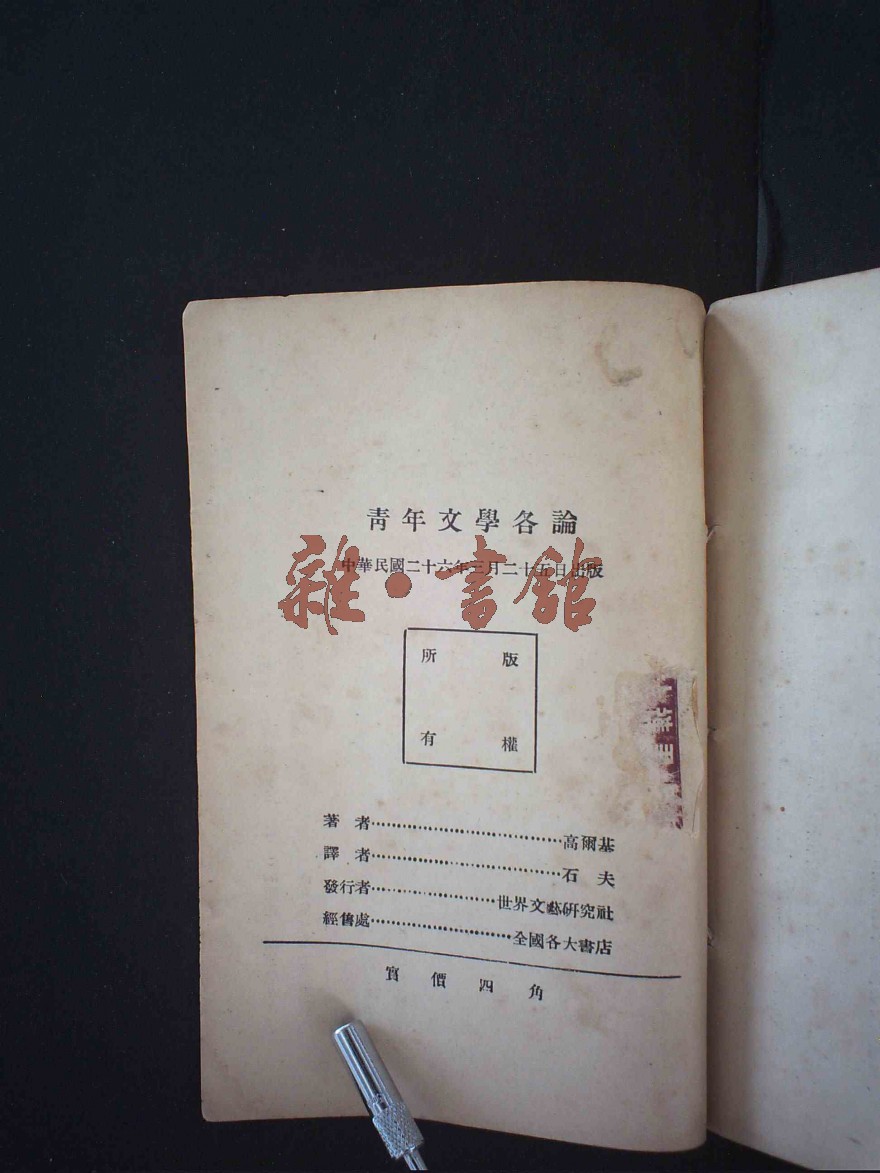 青年文學各論
中華民國二十六年三月二十五日出版
雜·書館
版權
所有
著者……高爾基
譯者……石夫
發行者……世界文藝研究社
經售處……全國各大書店
實價四角